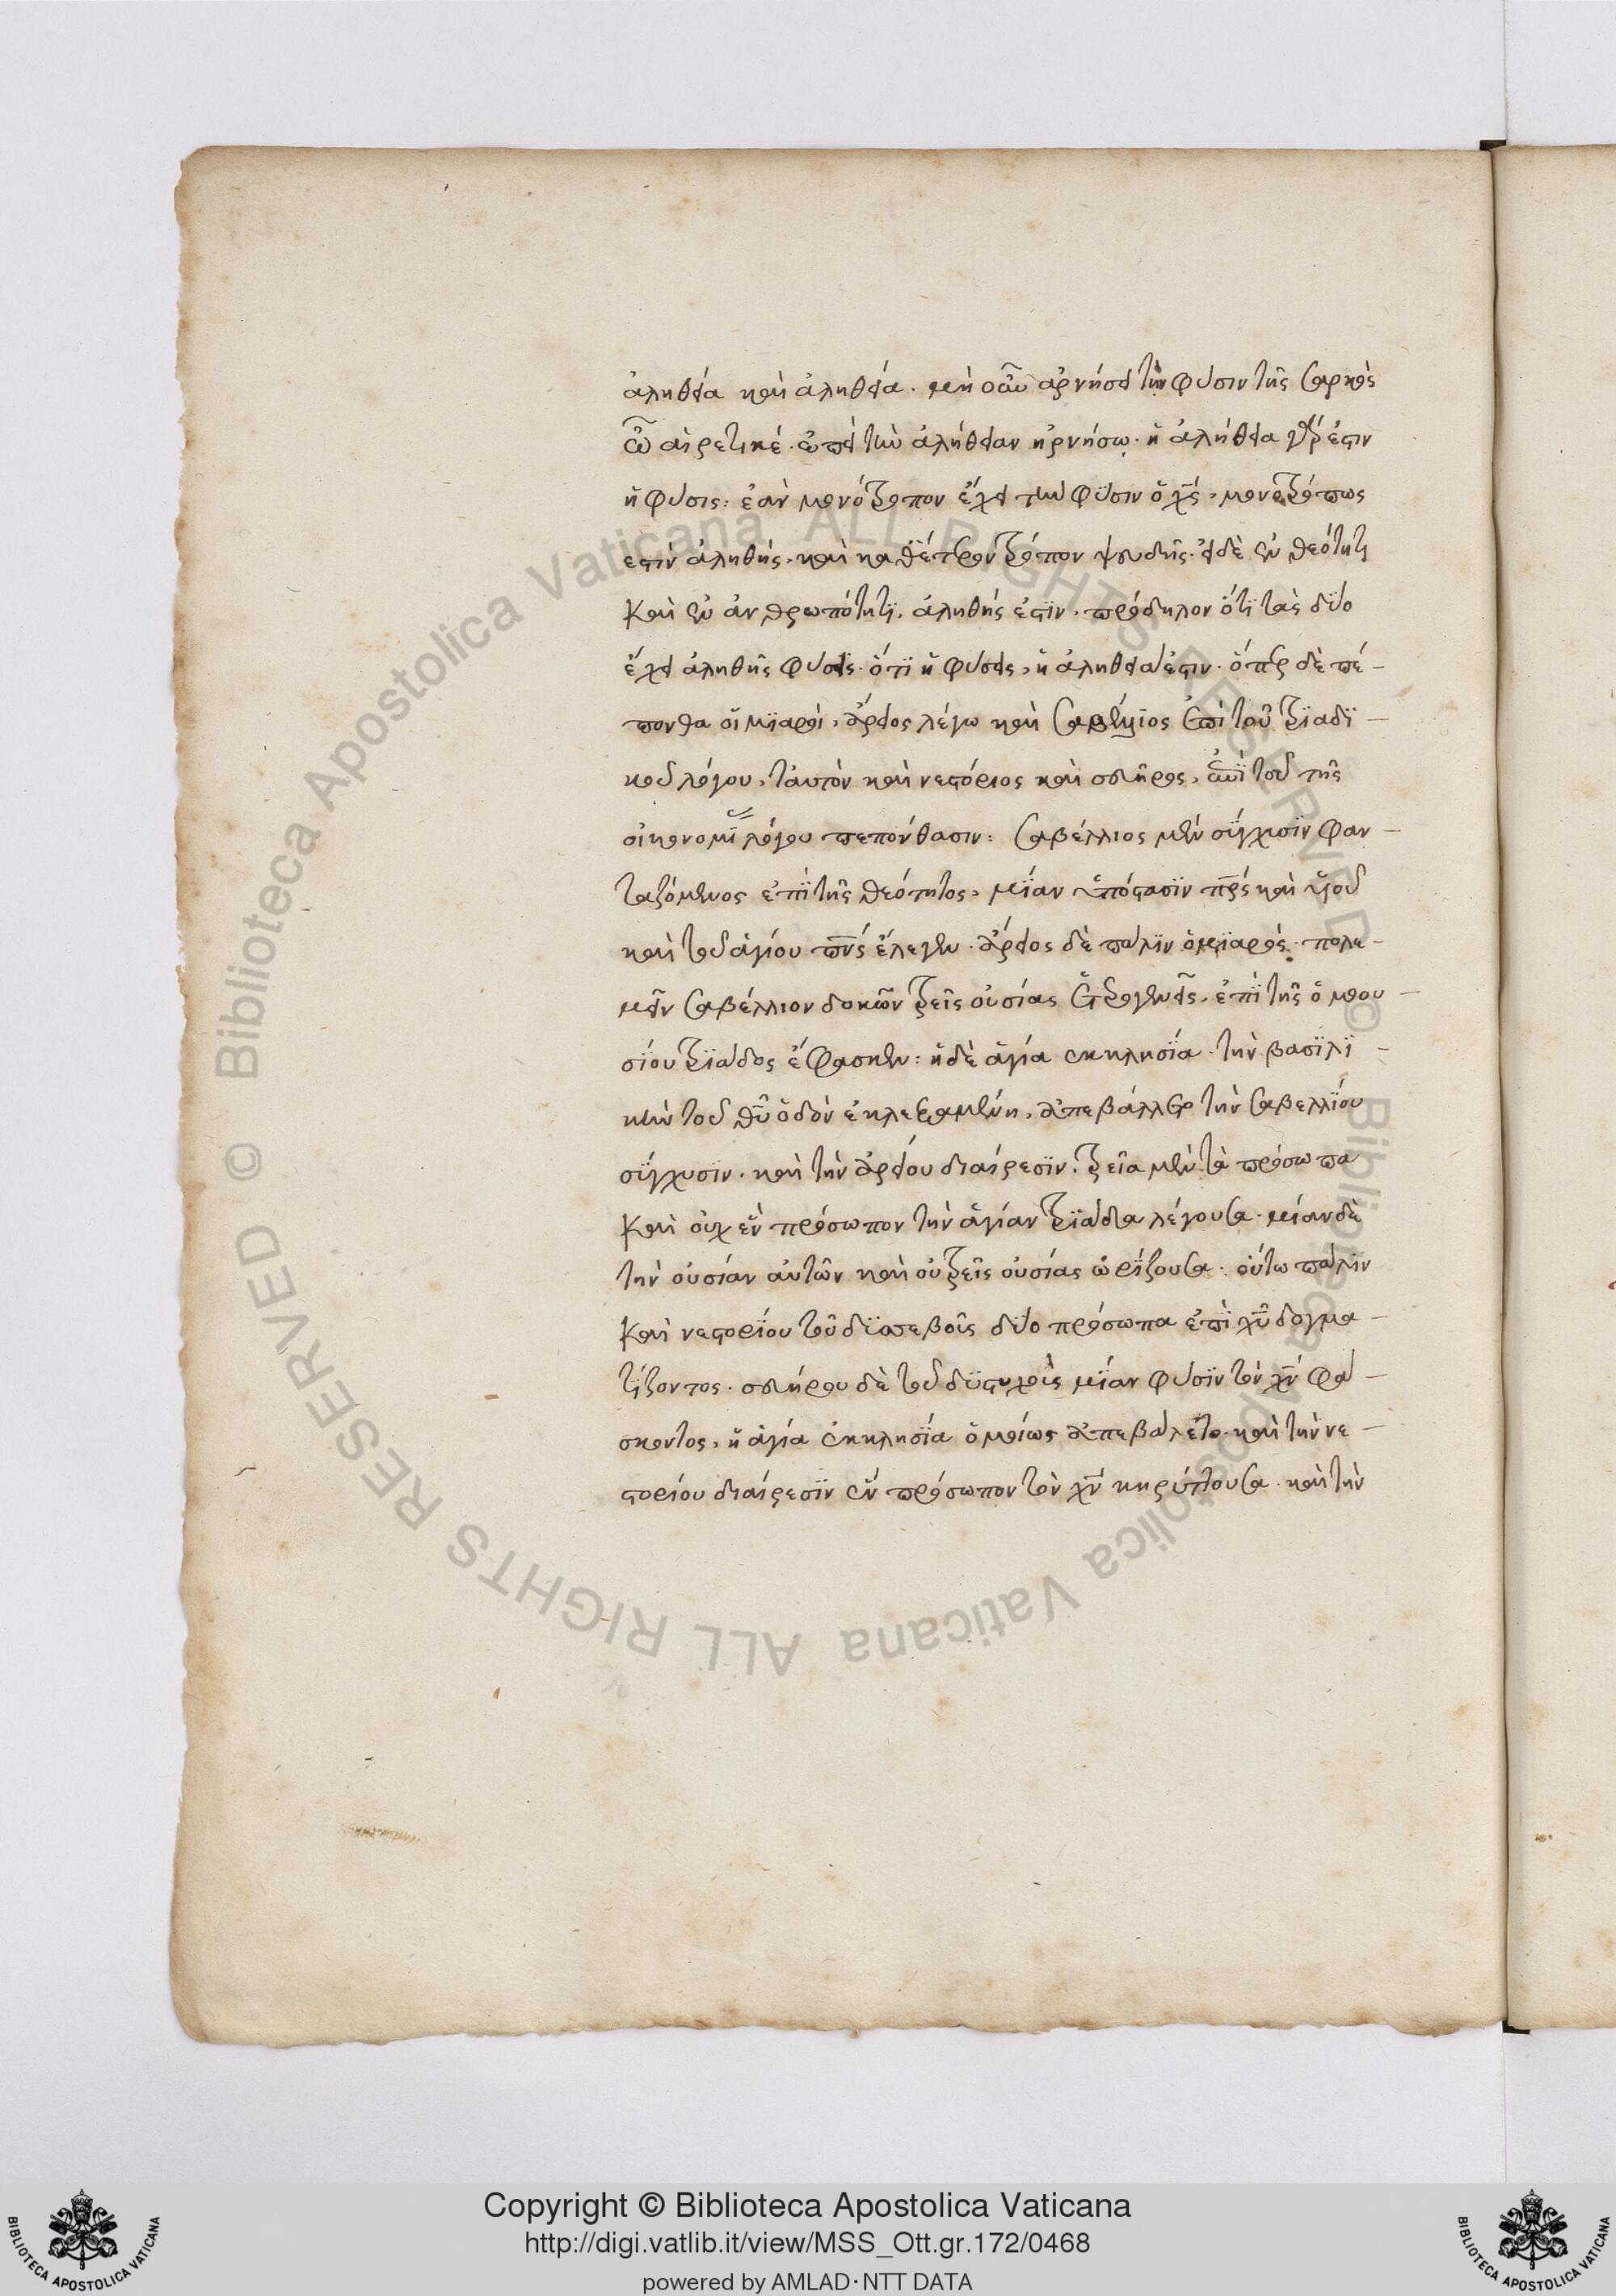 ἀλήθεια καὶ ἀλήθεια. μὴ οὖν ἀρνήσει τὴν φύσιν τῆς σαρκὸς
ὦ αἱρετικέ. ἐπεὶ τὴν ἀλήθειαν ἠρνήσω. ἡ ἀλήθεια γάρ ἐστιν
ἡ φύσις: ἐὰν μονότροπον ἔχει τὴν φύσιν ὁ χς, μονοτρόπως
ἐστὶν ἀληθής. καὶ καθ' ἕτερον τρόπον ψευδής. εἰ δὲ ἐν θεότητι
καὶ ἐν ἀνθρωπότητι. ἀληθής ἐστιν. πρόδηλον ὅτι τὰς δύο
ἔχει ἀληθεῖς φύσεις. ὅτι ἡ φύσις, ἡ ἀλήθειά ἐστιν. ὅπερ δὲ πέ-
πονθα οἱ μιαροὶ, ἄρειος λέγω καὶ σαβέλλιος ἐπὶ τοῦ τριαδι-
κοῦ λόγου, ταυτὸν καὶ νεστόριος καὶ σευῆρος, ἐπὶ τοῦ τῆς
οἰκονομί λόγου πεπόνθασιν: σαβέλλιος μὲν σύγχυσιν φαν-
ταζόμενος ἐπὶ τῆς θεότητος, μίαν ὑπόστασιν πρς καὶ υἱοῦ
καὶ τοῦ ἁγίου πνς ἔλεγεν. ἄρειος δὲ πάλιν ὁ μιαρός. πολε-
μεῖν σαβέλλιον δοκῶν τρεῖς οὐσίας ἑτερογενεῖς. ἐπὶ τῆς ὁμοου-
σίου τριάδος ἔφασκεν: ἡ δὲ ἁγία ἐκκλησία. τὴν βασιλι-
κὴν τοῦ θυ ὁδὸν ἐκλεξαμένη, ἀπεβάλλετο τὴν σαβελλίου
σύγχυσιν. καὶ τὴν ἀρείου διαίρεσιν. τρεῖα μὲν τὰ πρόσωπα
καὶ οὐχ ἓν πρόσωπον τὴν ἁγίαν τριάδα λέγουσα. μίαν δὲ
τὴν οὐσίαν αὐτῶν καὶ οὐ τρεῖς οὐσίας ὁρίζουσα. οὕτω πάλιν
καὶ νεστορίου τοῦ δυσσεβοῖς δύο πρόσωπα ἐπὶ χυ δογμα-
τίζοντος. σευήρου δὲ τοῦ δυστυχοῖς μίαν φύσιν τὸν χν φά-
σκοντος, ἡ ἁγία ἐκκλησία ὁμοίως ἀπεβάλετο. καὶ τὴν νε-
στορίου διαίρεσιν ἓν πρόσωπον τὸν χν κηρύττουσα. καὶ τὴν
© Biblioteca Apostolica Vaticana ALL RIGHTS RESERVED
Copyright © Biblioteca Apostolica Vaticana
http://digi.vatlib.it/view/MSS_Ott.gr.172/0468
powered by AMLAD·NTT DATA
BIBLIOTECA APOSTOLICA VATICANA
BIBLIOTECA APOSTOLICA VATICANA